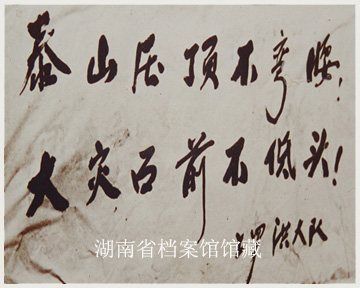 泰山压顶不弯腰,
大灾面前不低头!
罗洪大队
湖南省档案馆馆藏